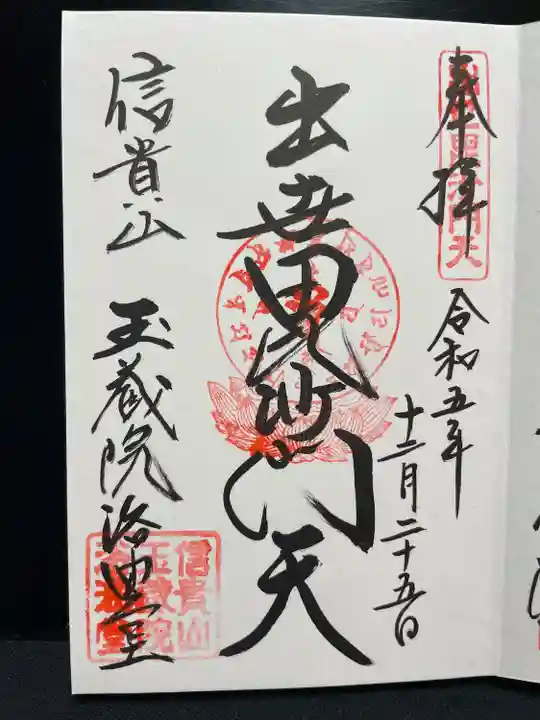 奉拝
令和五年
十二月二十五日
出世毘沙門天
信貴山
玉蔵院浴油堂
信貴山
玉蔵院
浴油堂